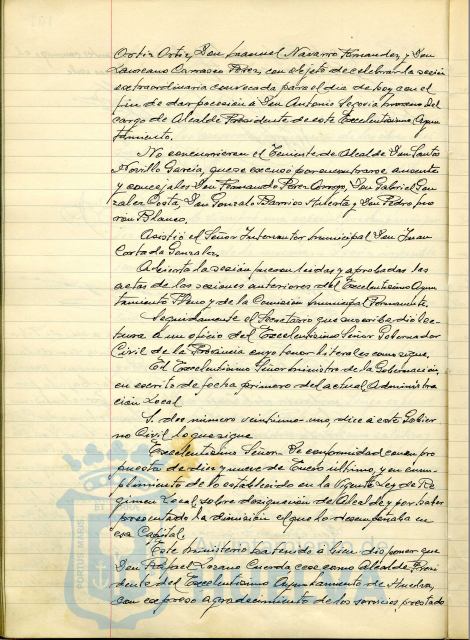 Ortiz Ortiz, Don Manuel Navarro Fernandez, y Don
Laureano Carrasco Perez, con objeto de celebrar la sesión
extraordinaria convocada para el día de hoy con el
fin de dar posesión a Don Antonio Segovia Moreno del
cargo de Alcalde Presidente de este Excelentísimo Ayun
tamiento.
No concurrieron el Teniente de Alcalde Don Santos
Novillo García, que se excusó por encontrarse ausente
y concejales Don Fernando Perez Arroyo, Don Gabriel Gon
zalez Costa, Don Gonzalo Barrios Huerta y Don Pedro
ron Blanco.
Asistió el Señor Interventor Municipal Don Juan
Cortada Gonzalez.
Abierta la sesión fueron leidas y aprobadas las
actas de las sesiones anteriores del Excelentísimo Ayun
tamiento Pleno y de la Comisión Municipal Permanente.
Seguidamente el Secretario que suscribe, dió lec-
tura a un oficio del Excelentísimo Señor Gobernador
Civil de la Provincia cuyo tenor literal es como sigue.
El Excelentísimo Señor Ministro de la Gobernación,
en escrito de fecha primero del actual, Administra
ción Local
S. dos número veintiuno-uno, dice a este Gobier
no Civil lo que sigue
Excelentísimo Señor: De conformidad con su pro
puesta de diez y nueve de Enero último, y en cum-
plimiento de lo establecido en la vigente Ley de Ré
gimen Local, sobre designación de Alcalde, y por haber
presentado la dimisión el que lo desempeñaba en
esa Capital.
Este Ministerio ha tenido a bien disponer que
Don Rafael Lozano Cuerda cese como Alcalde Presi
dente del Excelentísimo Ayuntamiento de Huelva,
con expreso agradecimiento de los servicios prestado
PORTUS MARIS
Ayuntamiento de
HUELVA